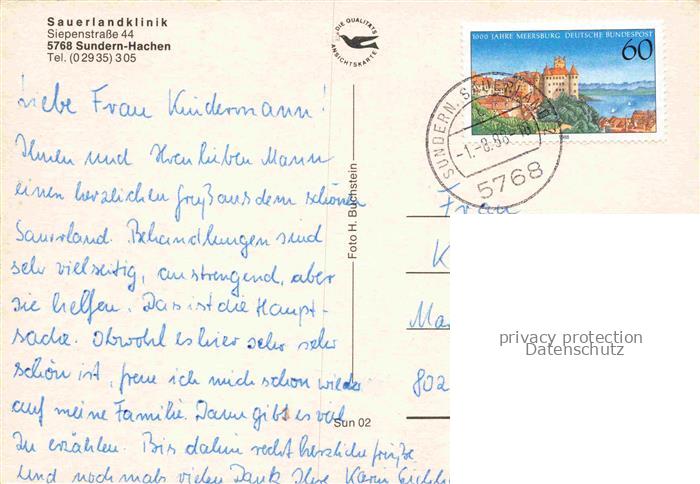 Sauerlandklinik
Siepenstraße 44
5768 Sundern-Hachen
Tel. (0 29 35) 3 05
DIE QUALITÄTS
ANSICHTSKARTE
1000 JAHRE MEERSBURG DEUTSCHE BUNDESPOST
60
1988
SUNDERN, SAUERLAND 1
-1.-8.88-18
5768
Liebe Frau Kindermann!
Ihnen und Ihren lieben Mann
einen herzlichen Gruß aus dem schönen
Sauerland. Behandlungen sind
sehr vielseitig, anstrengend, aber
sie helfen. Das ist die Haupt-
sache. Obwohl es hier sehr sehr
schön ist, freue ich mich schon wieder
auf meine Familie. Dann gibt es viel
zu erzählen. Bis dahin recht herzliche Grüße
und nochmals vielen Dank Ihre Karin
Foto H. Buchstein
Sun 02
Frau
K
Ma
802
privacy protection
Datenschutz